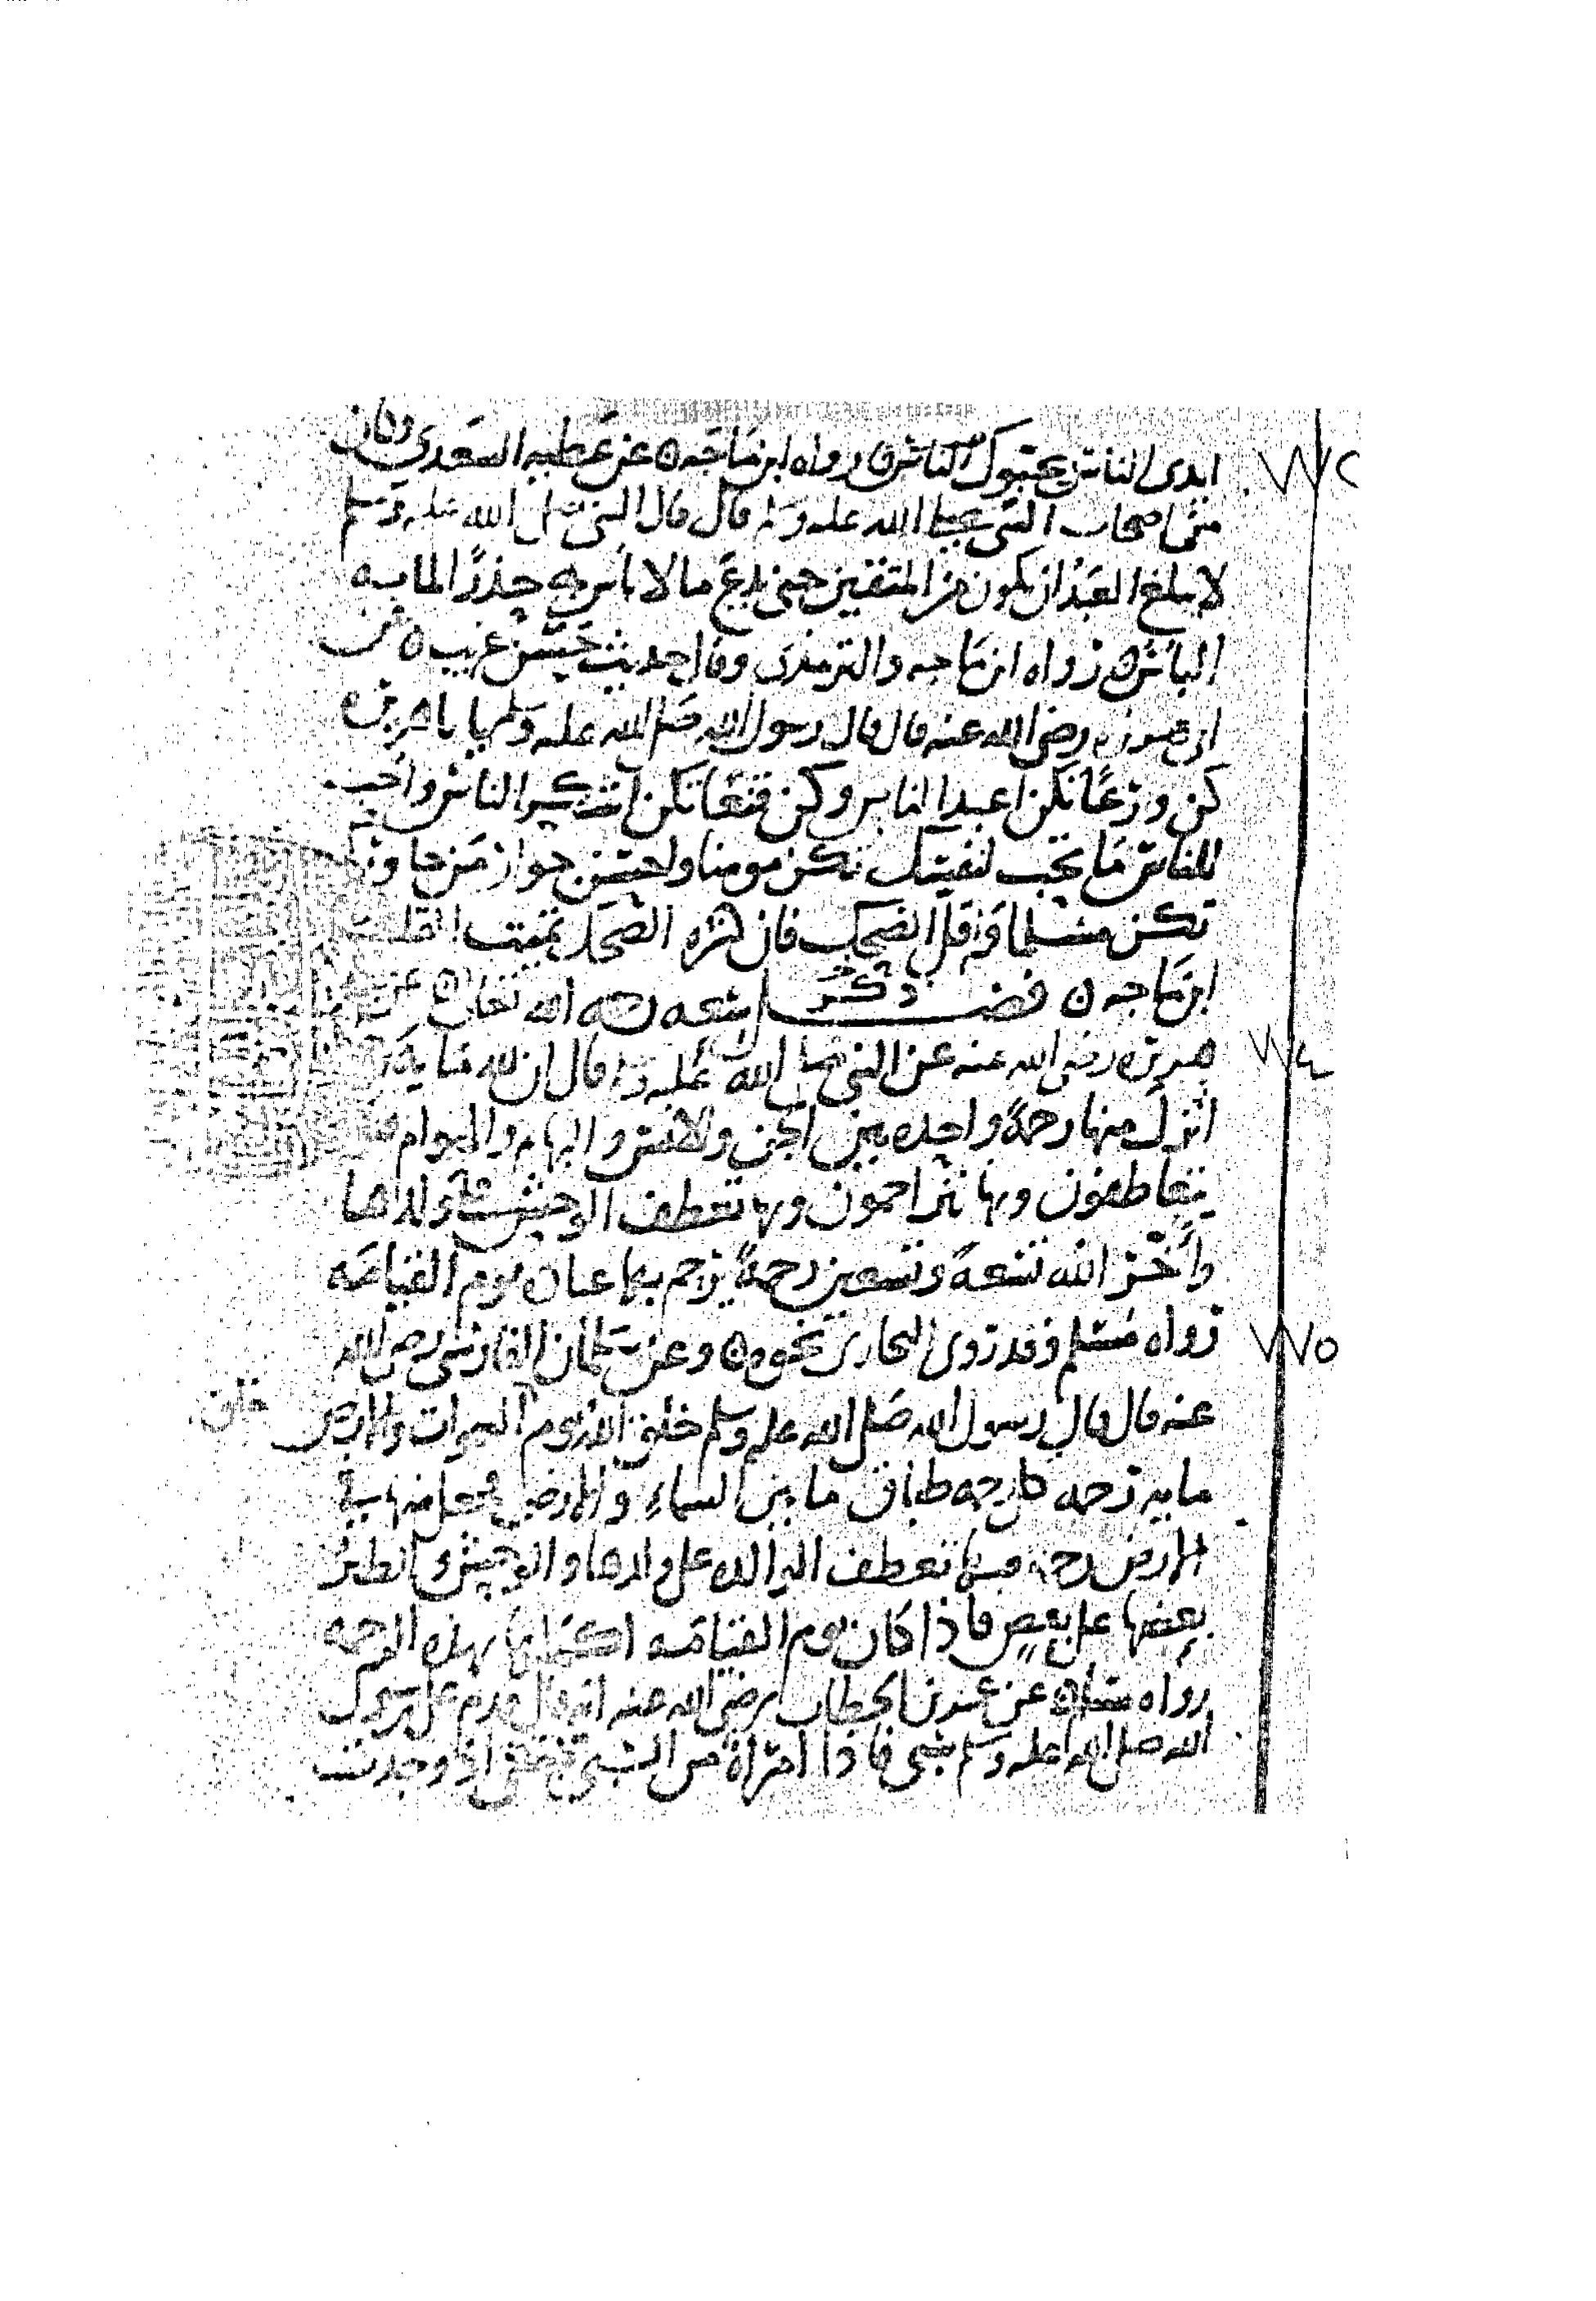 ايدي الناس يحبوك الناس رواه ابن ماجه ٥ عن عطيه السعدي وكان
من اصحاب النبي صلى الله عليه وسلم قال قال النبي صلى الله عليه وسلم
لا يبلغ العبد ان يكون من المتقين حتى يدع ما لا باس به حذرًا لما به
الباس ٥ رواه ابن ماجه والترمذي وقال حديث حسن غريب ٥ عن
ابي هريره رضي الله عنه قال قال رسول الله صلى الله عليه وسلم يا باهريره
كن ورعًا تكن اعبد الناس وكن قنعًا تكن اشكر الناس واحب
للناس ما تحب لنفسك تكن مومنا واحسن جوار من جاورك
تكن مسلما واقل الضحك فان كثره الضحك تميت القلب
ابن ماجه ٥ فصل ذكر سعه رحمه الله تعالى ٥ عن
هريره رضي الله عنه عن النبي صلى الله عليه وسلم قال ان لله مايه
انزل منها رحمةً واحده بين الجن والانس والبهايم والهوام
يتعاطفون وبها يتراحمون وبها تعطف الوحش على ولدها
واخّر الله تسعةً وتسعين رحمةً يرحم بها عباده يوم القيامه
رواه مسلم وقد روى البخاري نحوه ٥ وعن سلمان الفارسي رضي الله
عنه قال قال رسول الله صلى الله عليه وسلم خلق الله يوم السموات والارض خلق
مايه رحمه كل رحمه طباق ما بين السماءِ والارض فجعل منها في
الارض رحمه فبها تعطف الوالده على ولدها والوحش والطير
بعضها على بعض فاذا كان يوم القيامه اكملها بهذه الرحمه
رواه مسلم ٥ عن عمر بن الخطاب رضي الله عنه انه قال قدم على رسول
الله صلى الله عليه وسلم بسبي فاذا امراة من السبي تبتغي اذا وجدت
٧٧٤
٧٧٥